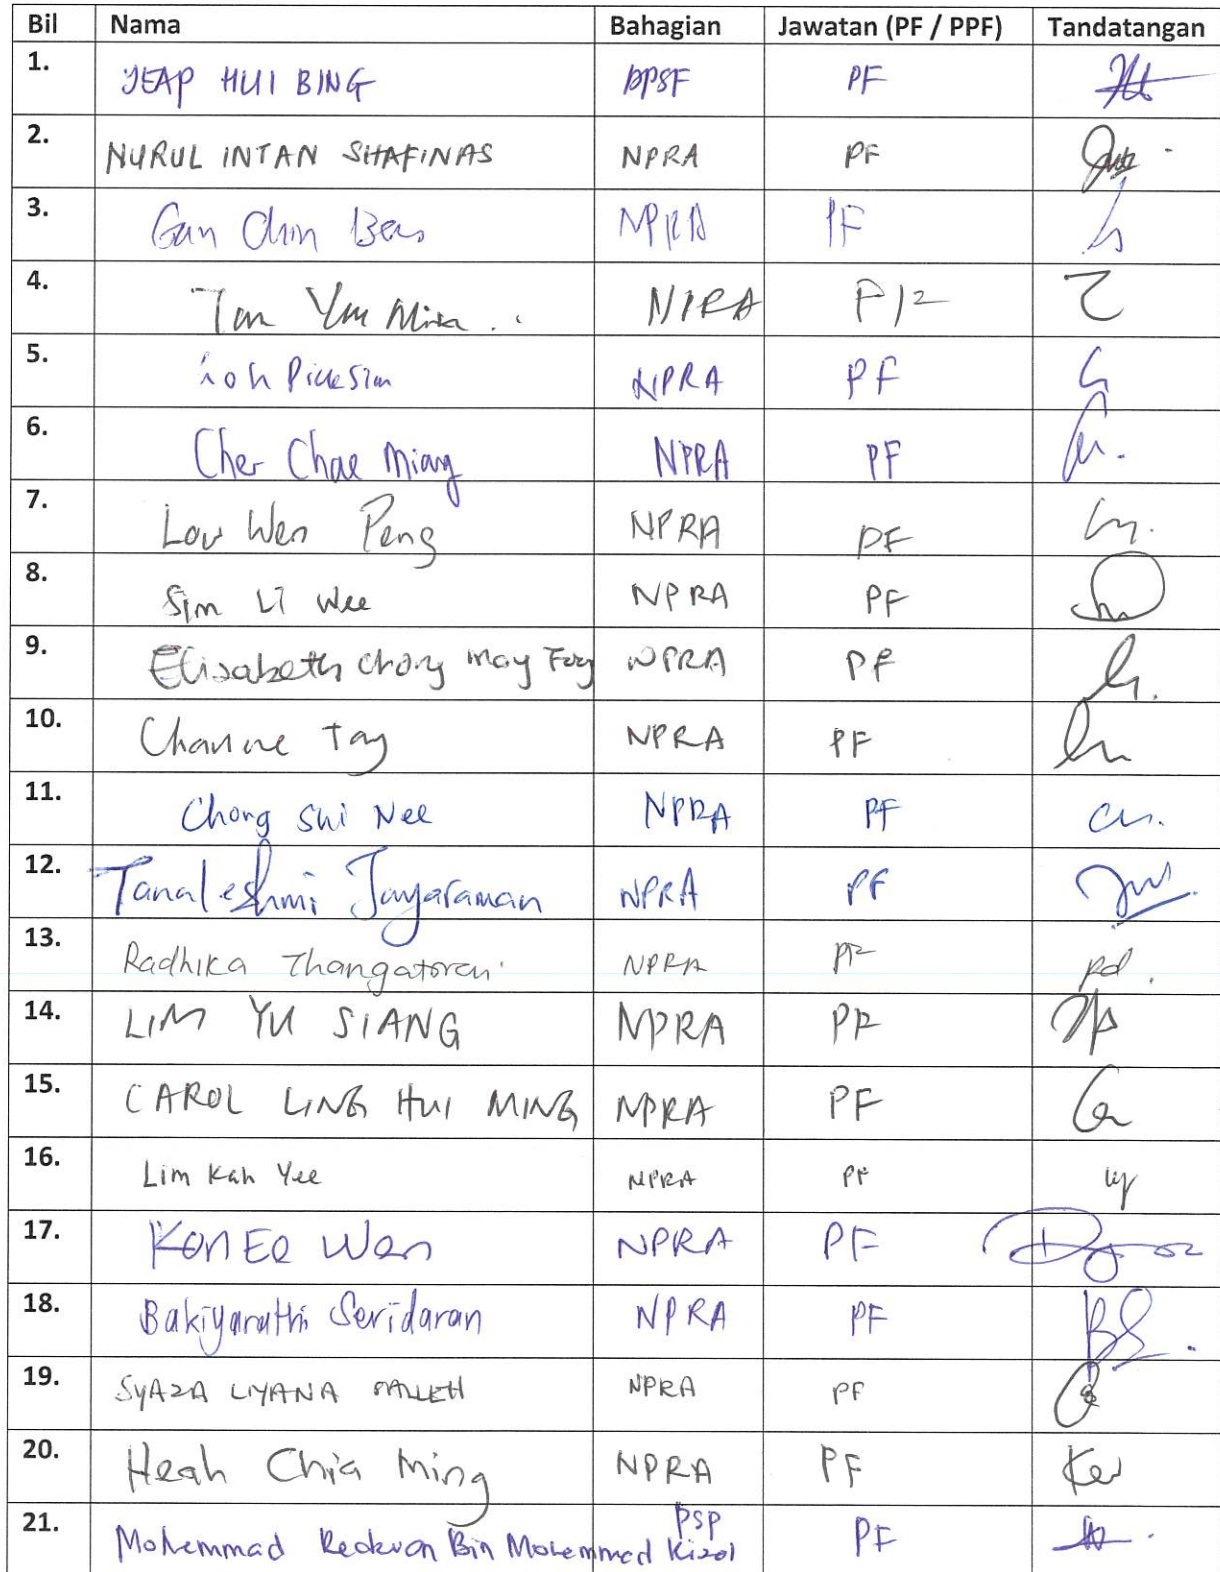 Bil Nama Bahagian Jawatan (PF / PPF) Tandatangan
1. YEAP HUI BING PF
2. NURUL INTAN SHAFINAS NPRA PF
3. Gan Chin NPRA PF
4. Tan NPRA
5. NPRA PF
6. Cher Chae Miang NPRA PF
7. Low Wen Peng NPRA PF
8. Sim Li Wee NPRA PF
9. Elisabeth Chong May NPRA PF
10. Tay NPRA PF
11. Chong Shi Nee NPRA PF
12. Tanaleshmi Jayaraman NPRA PF
13. Radhika Thangatorai NPRA PF
14. LIM YU SIANG NPRA PF
15. CAROL LING HUI MING NPRA PF
16. Lim Kah Yee NPRA PF
17. Kon Ee Wen NPRA PF
18. Bakiyarathi Seridaran NPRA PF
19. SYAZA LIYANA SALLEH NPRA PF
20. Heah Chia Ming NPRA PF
21. Mohammad Bin Mohammad PSP PF